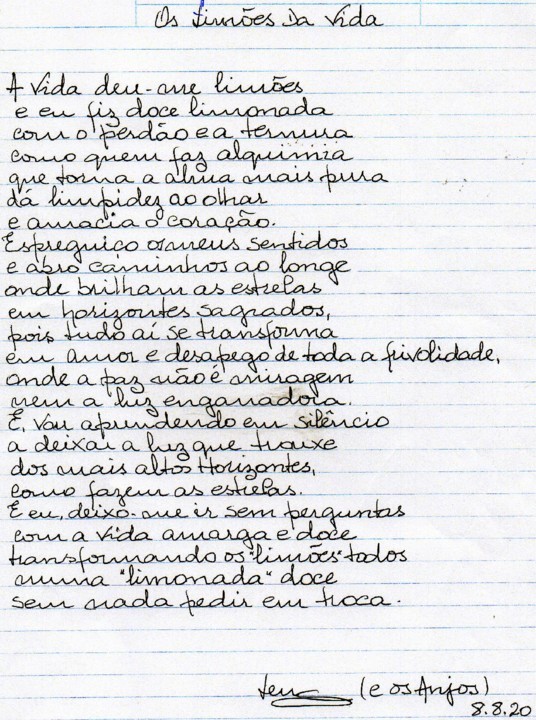 Os Limões Da Vida
A Vida deu-me limões
e eu fiz doce limonada
com o perdão e a ternura
como quem faz alquimia
que torna a alma mais pura
dá limpidez ao olhar
e amacia o coração.
Espreguiço os meus sentidos
e abro caminhos ao longe
onde brilham as estrelas
em horizontes sagrados,
pois tudo aí se transforma
em amor e desapego de toda a frivolidade,
onde a paz não é miragem
nem a luz enganadora.
E, vou aprendendo em silêncio
a deixar a luz que trouxe
dos mais altos Horizontes,
como fazem as estrelas.
E eu, deixo-me ir sem perguntas
com a vida amarga e doce
transformando os "limões" todos
numa "limonada" doce
sem nada pedir em troca.
(e os Anjos)
8.8.20